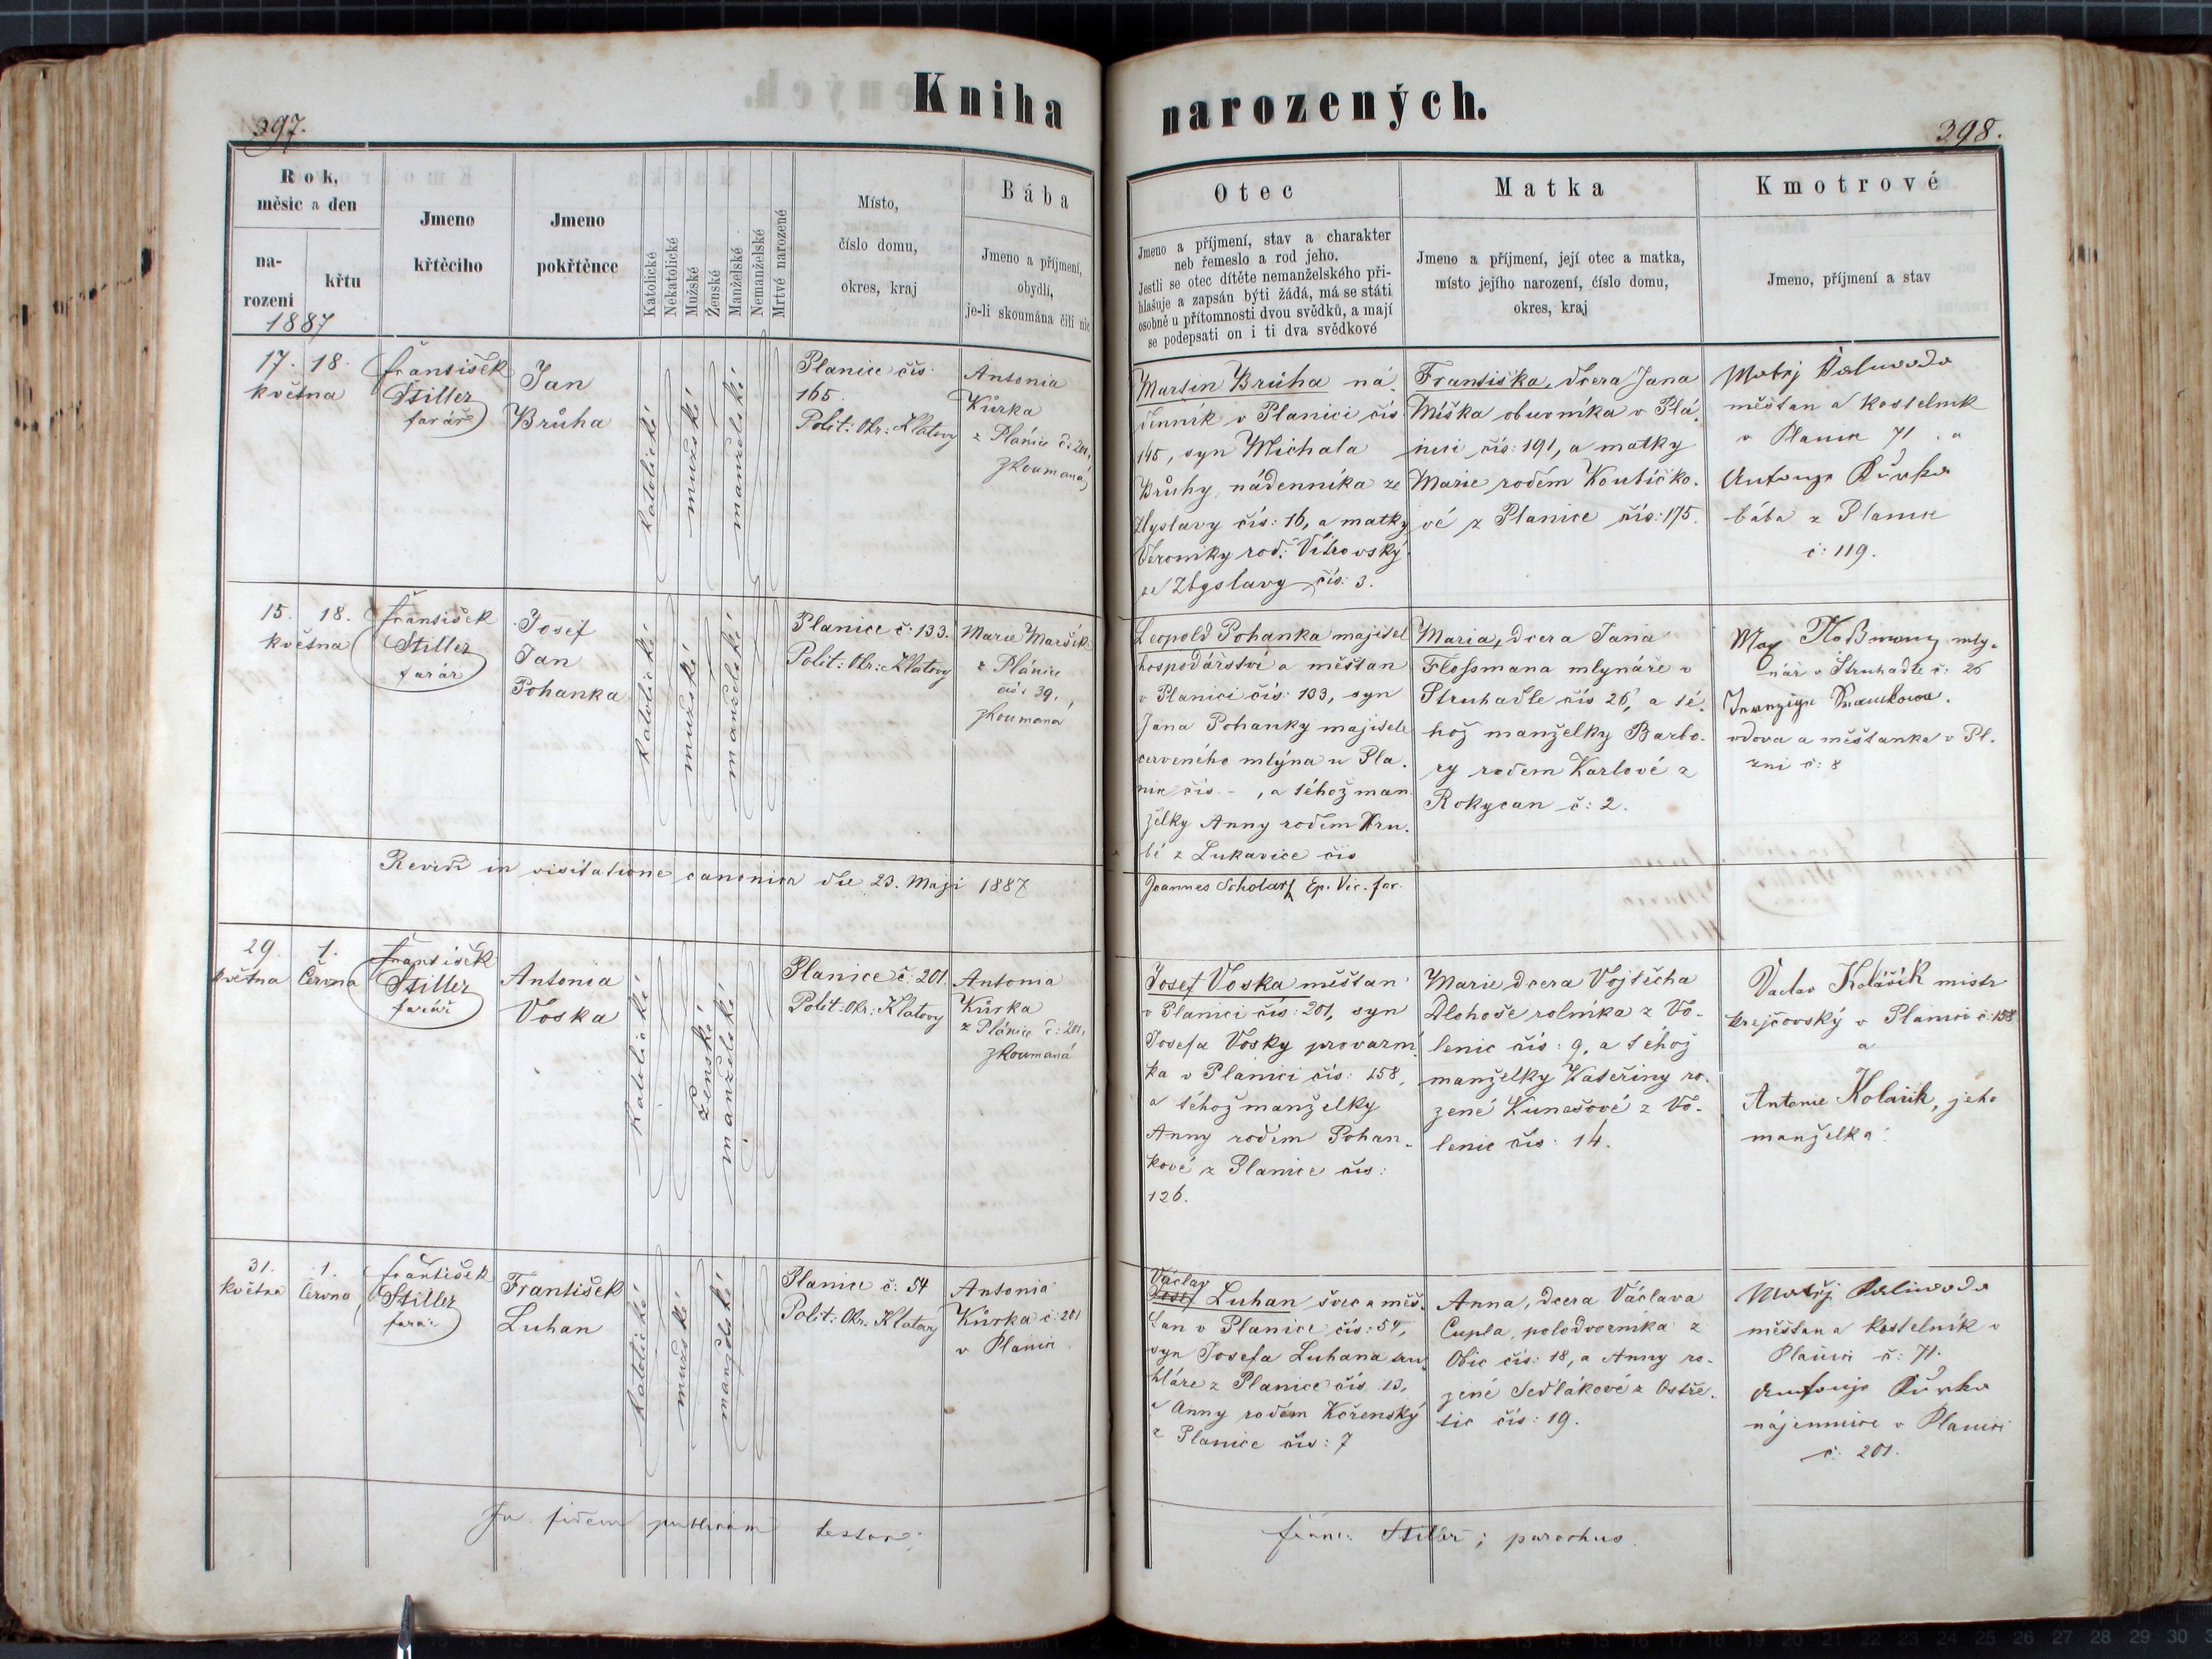 Kniha
narozených.
397.
398.
Rok,
měsíc a den
na-
rozeni
křtu
1887
Jmeno
křtěcího
Jmeno
pokřtěnce
Katolické
Nekatolické
Mužské
Ženské
Manželské
Nemanželské
Mrtvé narozené
Místo,
číslo domu,
okres, kraj
Bába
Jmeno a příjmení,
obydlí,
je-li skoumána čili nic
Otec
Jmeno a příjmení, stav a charakter
neb řemeslo a rod jeho.
Jestli se otec dítěte nemanželského při-
hlašuje a zapsán býti žádá, má se státi
osobně u přítomnosti dvou svědků, a mají
se podepsati on i ti dva svědkové
Matka
Jmeno a příjmení, její otec a matka,
místo jejího narození, číslo domu,
okres, kraj
Kmotrové
Jmeno, příjmení a stav
17. 18.
května
František
Stiller
farář
Jan
Brůha
katolické
mužské
manželské
Planice čís
165.
Polit: Okr: Klatovy
Antonia
Kůrka
z Plánice č: 201,
zkoumaná
Martin Brůha ná-
denník v Planici čís
145, syn Michala
Brůhy, nádenníka ze
Zbyslavy čís: 16, a matky
Veroniky rod: Větrovský
ze Zbyslavy čís: 3.
Františka, dcera Jana
Míška obuvníka v Plá-
nici čís: 191, a matky
Marie rodem Koutičko-
vé z Planice čís: 175.
Matěj
měšťan a kostelník
v Planici 71 a
Antonje Kůrka
bába z Planice
č: 119.
15. 18.
května
František
Stiller
farář
Josef
Jan
Pohanka
katolické
mužské
manželské
Planice č: 133.
Polit: Okr: Klatovy
Marie Maršík
z Plánice
čís: 39,
zkoumaná
Leopold Pohanka majitel
hospodářství a měšťan
v Planici čís: 133, syn
Jana Pohanky majitele
červeného mlýna u Pla-
nice čís. - , a téhož man-
želky Anny rodem Hru-
bé z Lukavice čís
Maria, dcera Jana
Flossmana mlynáře v
Struhadle čís 26, a té-
hož manželky Barbo-
ry rodem Karlové z
Rokycan č: 2.
Max Floßmann mly-
nář v Struhadle č: 26
vdova a měšťanka v Pl-
zni č: 8
Revidi in visitatione canonica die 23. Maji 1887
Joannes Scholarz Ep. Vic. for.
29. 1.
května Června
František
Stiller
farář
Antonia
Voska
katolické
ženské
manželské
Planice č: 201.
Polit: Okr: Klatovy
Antonia
Kůrka
z Plánice č: 201,
zkoumaná
Josef Voska měšťan
v Plánici čís: 201, syn
Josefa Vosky provazní-
ka v Planici čís: 158,
a téhož manželky
Anny rodem Pohan-
kové z Planice čís:
126.
Marie dcera Vojtěcha
Dlohoše rolníka z Vo-
lenic čís: 9, a téhož
manželky Kateřiny ro-
zené Kunešové z Vo-
lenic čís: 14.
Vaclav Kolářík mistr
krejčovský v Planici č: 158
a
Antonie Kolařik, jeho
manželka.
31. 1.
května Června
František
Stiller
farář
František
Luhan
katolické
mužské
manželské
Planice č: 54
Polit: Okr: Klatovy
Antonia
Kůrka č: 201
v Planici
Václav
Josef Luhan švec a měš-
ťan v Planici čís: 54,
syn Josefa Luhana tru-
hláře z Planice čís 13,
a Anny rodem Kořenský
z Planice čís: 7
Anna, dcera Václava
Cupla, polodvorníka z
Obic čís: 18, a Anny ro-
zené Sedlákové z Ostře-
tic čís: 19.
Matěj
měšťan a kostelník v
Planici č: 71.
Antonje Kůrka
nájemnice v Planici
č: 201.
In fidem publicam testor;
Franc: Stiller; parochus.